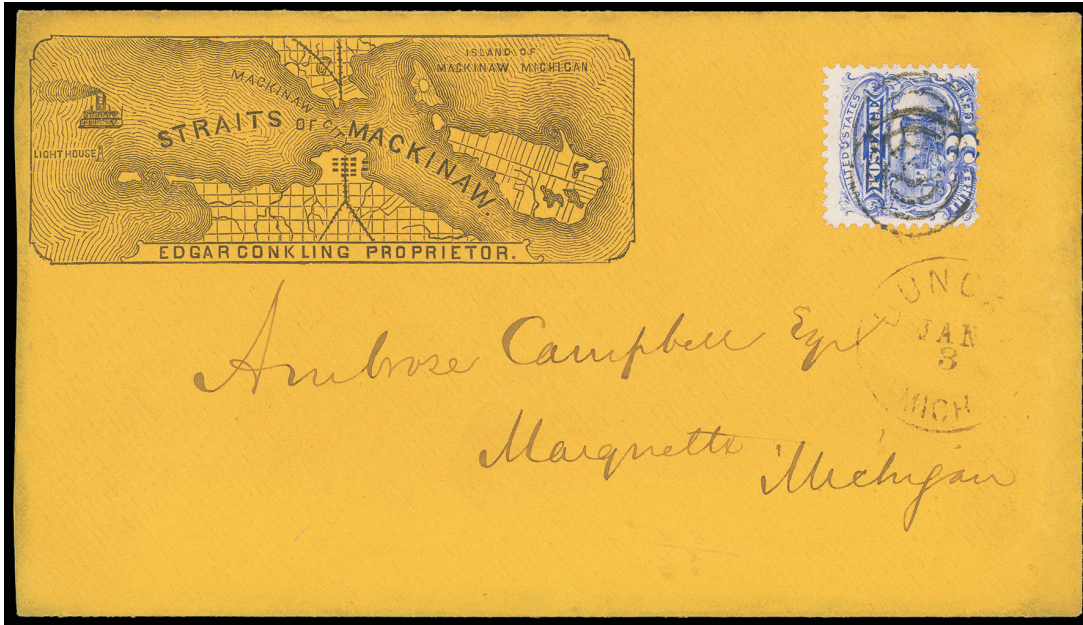 ISLAND OF
MACKINAW MICHIGAN
MACKINAW CITY
STRAITS OF MACKINAW.
LIGHT HOUSE
EDGAR CONKLING PROPRIETOR.
UNITED STATES
POSTAGE
3
JAN
3
MICH
Ambrose Campbell Esqr
Marquette
Michigan